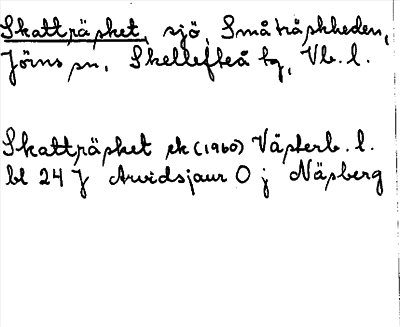 Skatträsket, sjö, Småträskheden,
Jörns sn, Skellefteå tg, Vb. l.
Skatträsket ek (1960) Västerb. l.
bl 24 J Arvidsjaur O j Näsberg